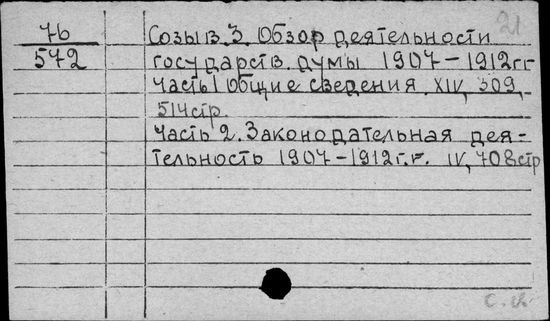 21
76
572
Созыв 3. Обзор деятельности
государств. думы 1907-1912гг
Часть 1 Общие сведения. XIV, 309,
514стр.
Часть 2. Законодательная дея-
тельность 1907-1912г.г. IV, 708стр